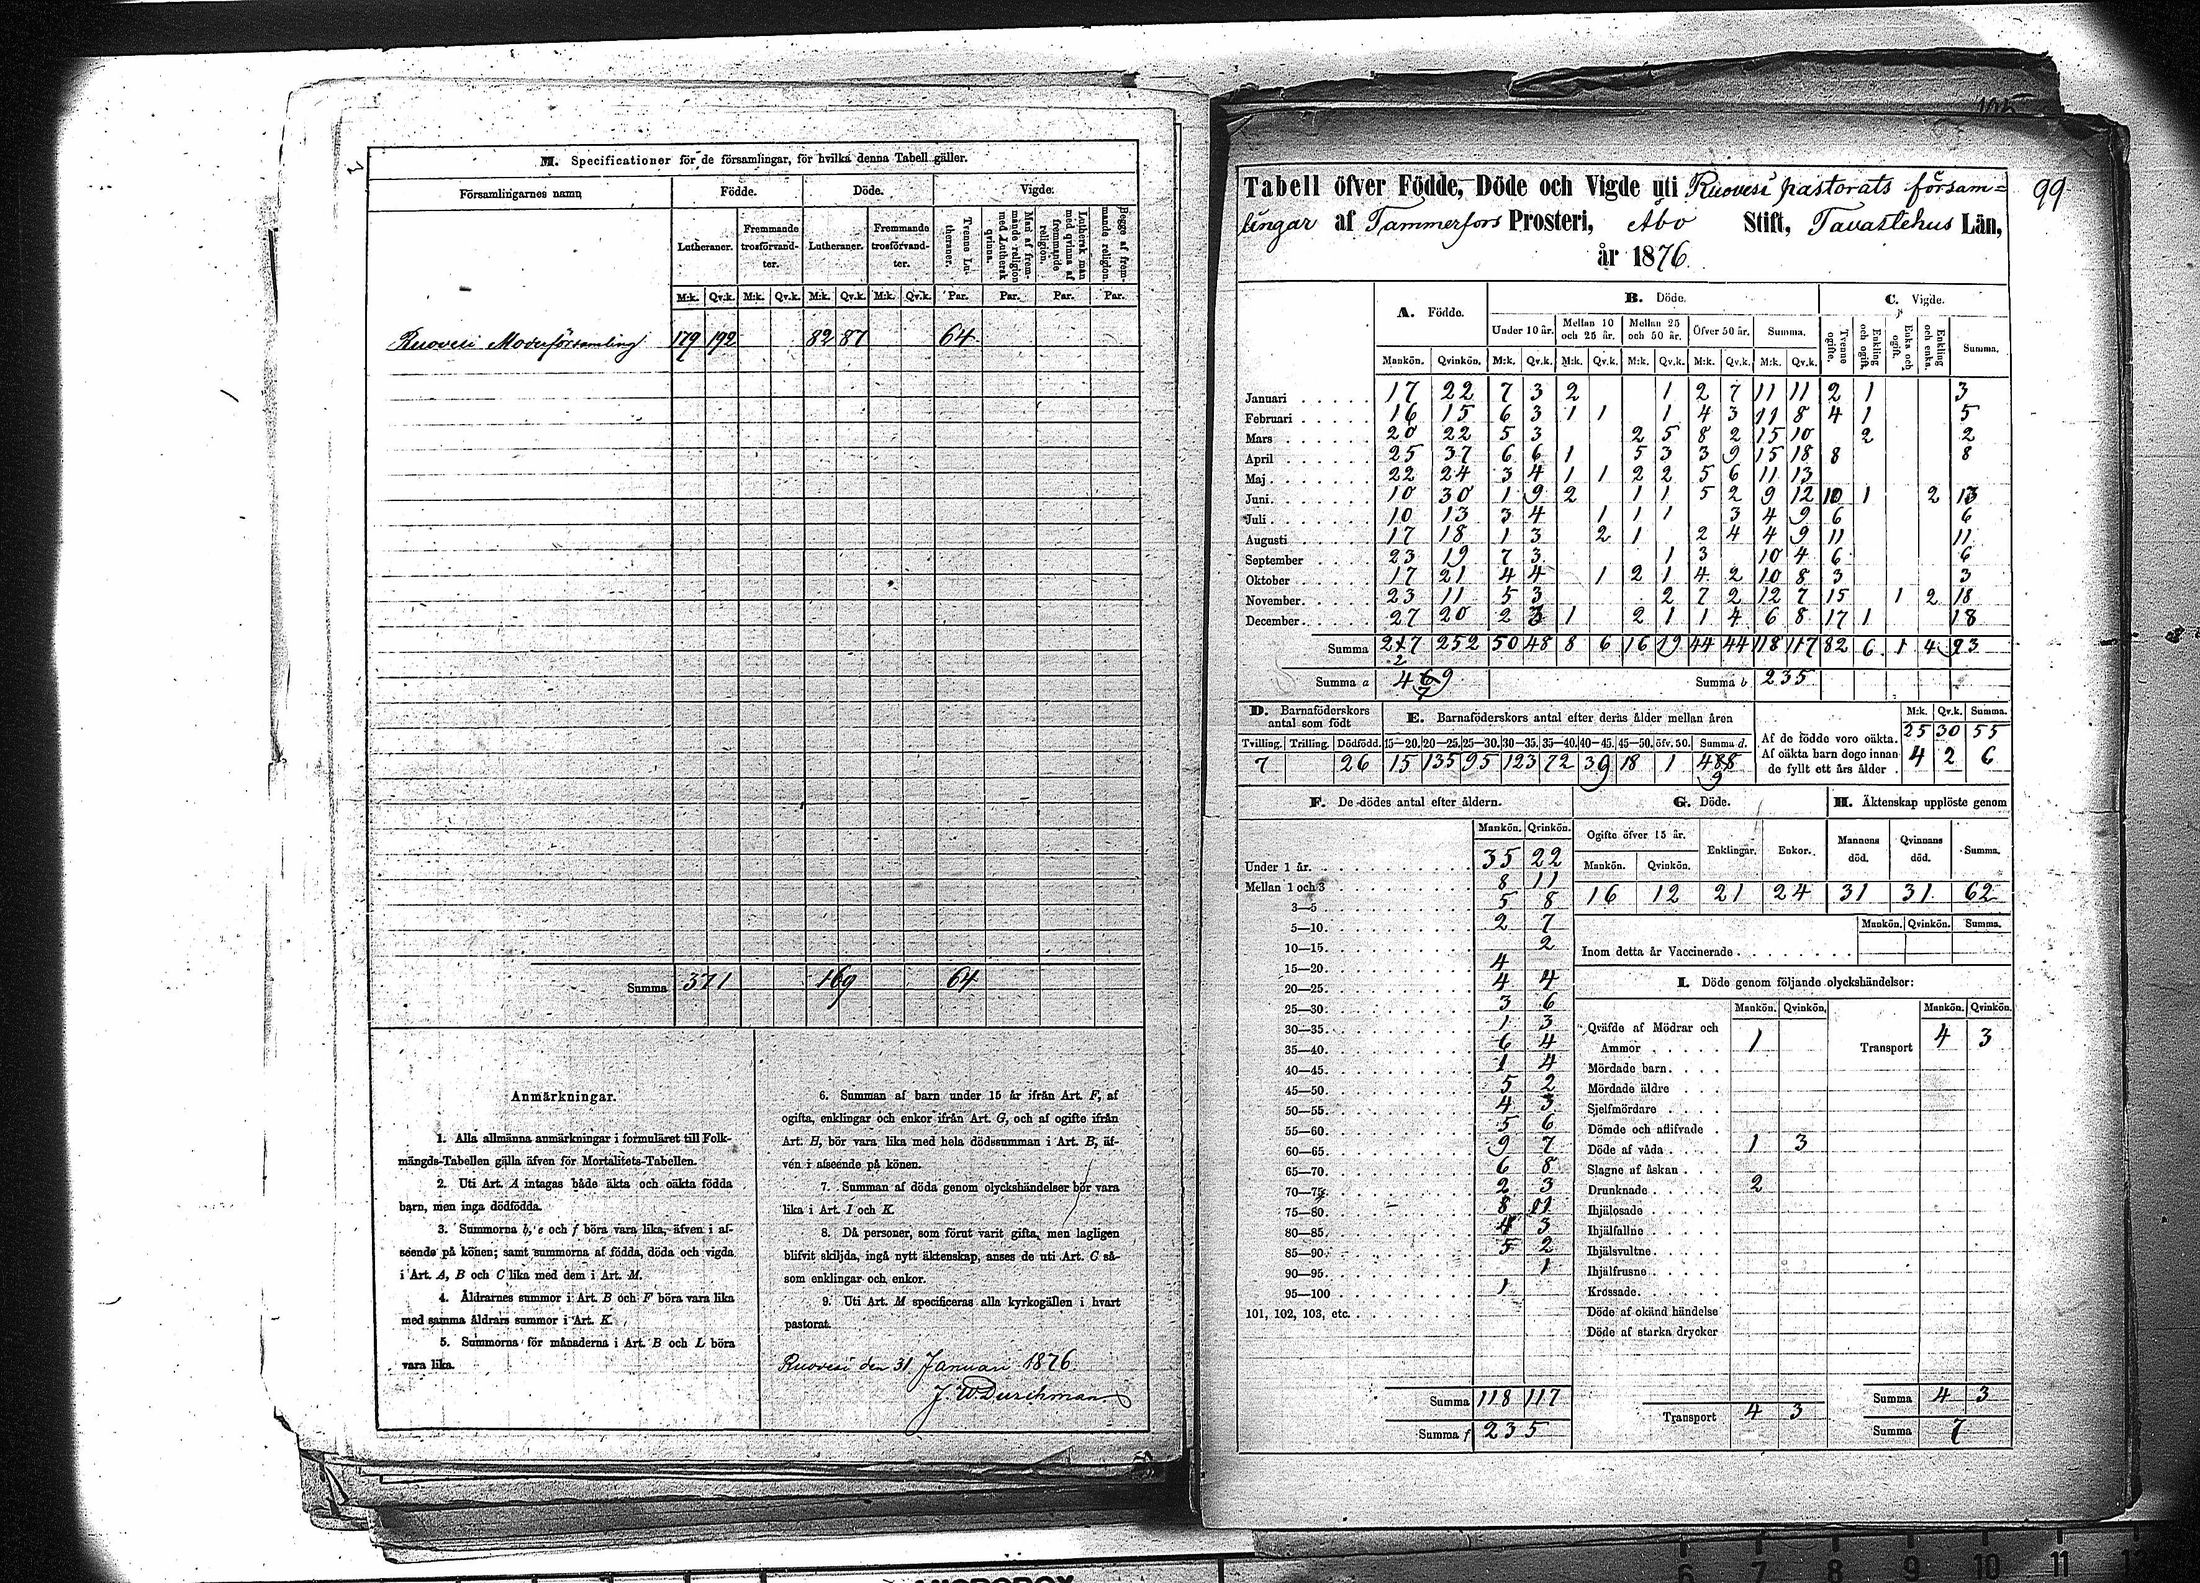 M. Specificationer för de församlingar, för hvilka denna Tabell gäller.
Församlingarnes namn. Födde. Döde. Vigde.
Lutheraner. Fremmande trosförvandter. Lutheraner. Fremmande trosförvandter. Tvenne Lutheraner. Man af fremmande religion med Luthersk qvinna. Luthersk man med qvinna af fremmande religion. Begge af fremmande religion.
M:k. Qv.k. M:k. Qv.k. M:k. Qv.k. M:k. Qv.k. Par. Par. Par. Par.
Ruovesi Moderförsamling 179 192 82 87 64
Summa 371 169 64
Anmärkningar.
1. Alla allmänna anmärkningar i formuläret till Folk-
mängds-Tabellen gälla äfven för Mortalitets-Tabellen.
2. Uti Art. A intagas både äkta och oäkta födda
barn, men inga dödfödda.
3. Summorna b, e och f böra vara lika, äfven i af-
seende på könen; samt summorna af födda, döda och vigda
i Art. A, B och C lika med dem i Art. M.
4. Åldrarnes summor i Art. B och F böra vara lika
med samma åldrars summor i Art. K.
5. Summorna för månaderna i Art. B och L böra
vara lika.
6. Summan af barn under 15 år ifrån Art. F, af
ogifta, enklingar och enkor ifrån Art. G, och af ogifte ifrån
Art. H, bör vara lika med hela dödssumman i Art. B, äf-
ven i afseende på könen.
7. Summan af döda genom olyckshändelser bör vara
lika i Art. I och K.
8. Då personer, som förut varit gifta, men lagligen
blifvit skiljda, ingå nytt äktenskap, anses de uti Art. C så-
som enklingar och enkor.
9. Uti Art. M specificeras alla kyrkogällen i hvart
pastorat.
Ruovesi den 31 Januari 1876.
J. W. Durchman.
99
Tabell öfver Födde, Döde och Vigde uti Ruovesi pastorats försam=
lingar af Tammerfors Prosteri, Åbo Stift, Tavastehus Län,
år 1876.
A. Födde. B. Döde. C. Vigde.
Under 10 år. Mellan 10 och 25 år. Mellan 25 och 50 år. Öfver 50 år. Summa. Tvenne ogifte. Enkling och ogift. Enka och ogift. Enkling och enka. Summa.
Mankön. Qvinkön. M:k. Qv.k. M:k. Qv.k. M:k. Qv.k. M:k. Qv.k. M:k. Qv.k.
Januari 17 22 7 3 2 1 2 7 11 11 2 1 3
Februari 16 15 6 3 1 1 1 4 3 11 8 4 1 5
Mars 20 22 5 3 2 5 8 2 15 10 2 2
April 25 37 6 6 1 5 3 3 9 15 18 8 8
Maj 22 24 3 4 1 1 2 2 5 6 11 13
Juni 10 30 1 9 2 1 1 5 2 9 12 10 1 2 13
Juli 10 13 3 4 1 1 1 3 4 9 6 6
Augusti 17 18 1 3 2 1 2 4 4 9 11 11
September 23 19 7 3 1 3 10 4 6 6
Oktober 17 21 4 4 1 2 1 4 2 10 8 3 3
November 23 11 5 3 2 7 2 12 7 15 1 2 18
December 27 20 2 3 1 2 1 1 4 6 8 17 1 18
Summa 217 252 50 48 8 6 16 19 44 44 118 117 82 6 1 4 93
2
Summa a 469 Summa b 235
7
D. Barnaföderskors antal som födt E. Barnaföderskors antal efter deras ålder mellan åren
Tvilling. Trilling. Dödfödd. 15—20. 20—25. 25—30. 30—35. 35—40. 40—45. 45—50. öfv. 50. Summa d.
7 26 15 135 95 123 72 39 18 1 488
9
M:k. Qv.k. Summa.
Af de födde voro oäkta. 25 30 55
Af oäkta barn dogo innan
de fyllt ett års ålder 4 2 6
F. De dödes antal efter åldern.
Mankön. Qvinkön.
Under 1 år. 35 22
Mellan 1 och 3 8 11
3—5 5 8
5—10. 2 7
10—15. 2
15—20. 4
20—25. 4 4
25—30. 3 6
30—35. 1 3
35—40. 6 4
40—45. 1 4
45—50. 5 2
50—55. 4 3
55—60. 5 6
60—65. 9 7
65—70. 6 8
70—75. 2 3
75—80. 8 11
80—85. 4 3
85—90. 5 2
90—95. 1
95—100 1
101, 102, 103, etc.
Summa 118 117
Summa f 235
G. Döde.
Ogifte öfver 15 år. Enklingar. Enkor.
Mankön. Qvinkön.
16 12 21 24
H. Äktenskap upplöste genom
Mannens död. Qvinnans död. Summa.
31 31 62
Mankön. Qvinkön. Summa.
Inom detta år Vaccinerade
I. Döde genom följande olyckshändelser:
Mankön. Qvinkön. Mankön. Qvinkön.
Qväfde af Mödrar och
Ammor 1
Transport 4 3
Mördade barn.
Mördade äldre
Sjelfmördare
Dömde och aflifvade
Döde af våda 1 3
Slagne af åskan
Drunknade 2
Ihjälosade
Ihjälfallne
Ihjälsvultne
Ihjälfrusne
Krossade.
Döde af okänd händelse
Döde af starka drycker
Transport 4 3
Summa 4 3
Summa 7
6 7 8 9 10 11